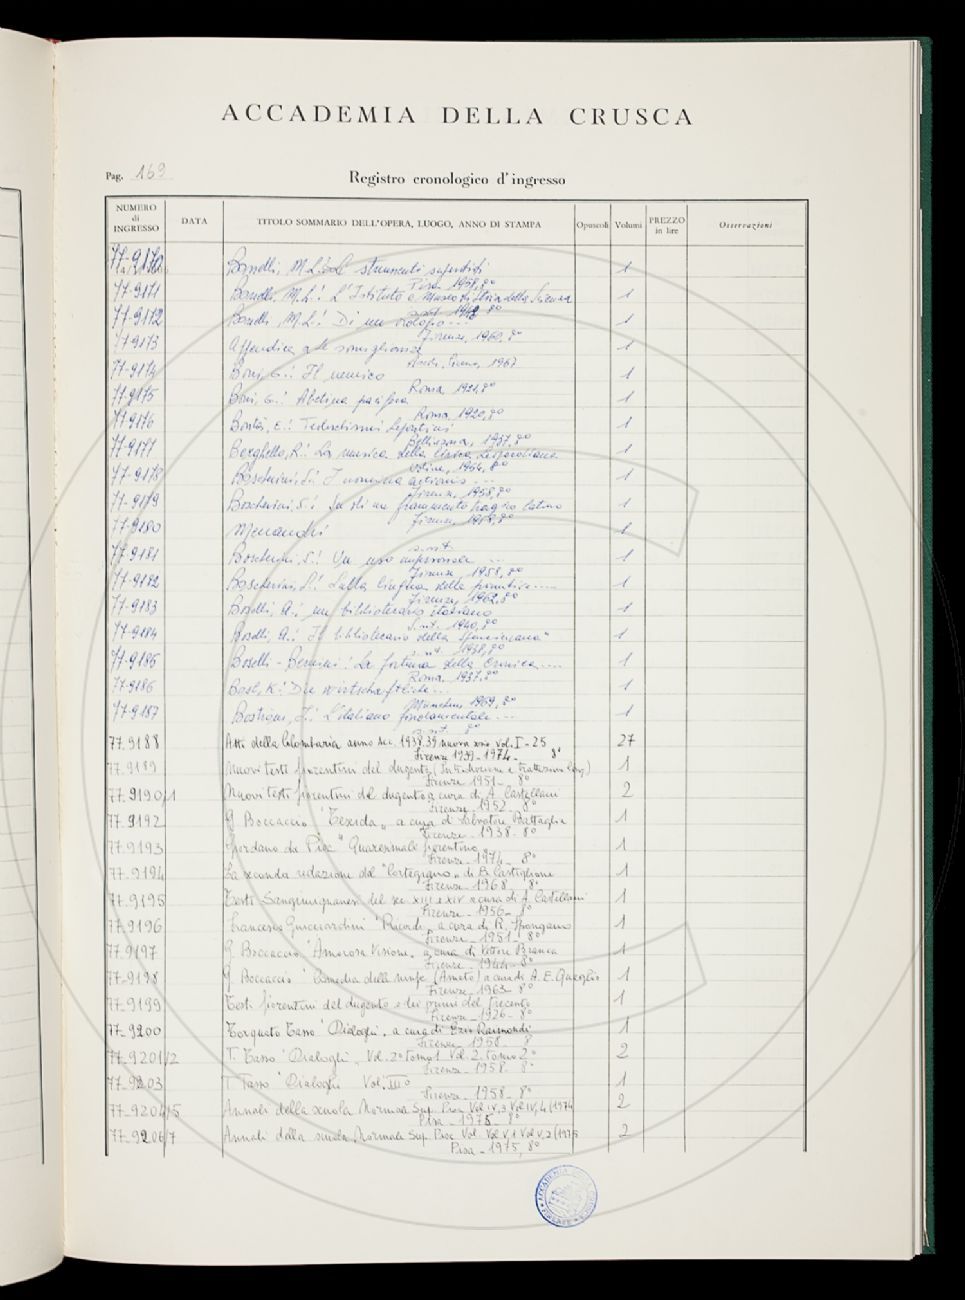 ACCADEMIA DELLA CRUSCA
Pag. 169
Registro cronologico d'ingresso
NUMERO di INGRESSO DATA TITOLO SOMMARIO DELL'OPERA, LUOGO, ANNO DI STAMPA Opuscoli Volumi PREZZO in lire Osservazioni
77-9170 Bonelli, M.L.: strumenti superstiti 1
Pisa 1958, 8°
77-9171 Bonelli, M.L.: L'Istituto e Museo di Storia della Scienza 1
8°
77-9172 Bonelli M.L.: Di un orologio... 1
Firenze, 1960, 8°
77-9173 Appendice alle somiglianze 1
1967
77-9174 Boni, G.: Il nemico 1
Roma, 1921, 8°
77-9175 Boni, G.: 1
Roma, 1920, 8°
77-9176 1
Bellinzona, 1957, 8°
77-9177 Borghello, R.: La musica della lirica Leopardiana 1
Udine, 1964, 8°
77-9178 Boscherini, S.: I nomina actionis ... 1
Firenze, 1958, 8°
77-9179 Boscherini, S.: Su di un frammento tragico latino 1
Firenze, 1958, 8°
77-9180 Menandri 1
s.n.t.
77-9181 Boscherini, S.: Un uso impersonale ... 1
Firenze, 1958, 8°
77-9182 Boscherini, S.: Sulla lingua della primitiva..... 1
Firenze, 1962, 8°
77-9183 Boselli, A.: un bibliotecario italiano 1
s.n.t. 1940, 8°
77-9184 Boselli, A.: Il bibliotecario della " 1
s.n.t. 1938, 8°
77-9185 Boselli - Bernini: La fortuna della Cronica.... 1
Roma, 1937, 8°
77-9186 Bosl, K.: Die wirtschaftliche... 1
München, 1969, 8°
77-9187 L'italiano fondamentale... 1
s.n.t. 8°
77-9188 Atti della Colombaria anno sec. 1938.39 nuova serie vol. I - 25 27
Firenze 1939-1974 - 8°
77-9189 Nuovi testi fiorentini del dugento (Introduzione e trattazione ling.) 1
Firenze 1951 - 8°
77-9190/1 Nuovi testi fiorentini del dugento a cura di A. Castellani 2
Firenze 1952 - 8°
77-9192 G. Boccaccio "Teseida" a cura di Salvatore Battaglia 1
Firenze - 1938 - 8°
77-9193 Giordano da Pisa "Quaresimale fiorentino" 1
Firenze - 1974 - 8°
77-9194 La seconda redazione del "Cortegiano" di B. Castiglione 1
Firenze - 1968 8°
77-9195 Testi Sangimignanesi del sec XIII e XIV a cura di A. Castellani 1
Firenze - 1956 - 8°
77-9196 Francesco Guicciardini "Ricordi" a cura di R. Spongano 1
Firenze - 1951 - 8°
77-9197 G. Boccaccio "Amorosa Visione" a cura di Vittore Branca 1
Firenze - 1944 - 8°
77-9198 G. Boccaccio "Comedia delle ninfe (Ameto) a cura di A. E. Quaglio 1
Firenze - 1963 - 8°
77-9199 Testi fiorentini del dugento e dei primi del trecento 1
Firenze - 1926 - 8°
77-9200 Torquato Tasso "Dialoghi" a cura di Ezio Raimondi 1
Firenze - 1958 - 8
77-9201/2 T. Tasso "Dialoghi" Vol. 2° tomo 1 Vol. 2. tomo 2° 2
Firenze - 1958 - 8°
77-9203 T. Tasso "Dialoghi Vol. III° 1
Firenze - 1958 - 8°
77-9204/5 Annali della scuola Normale Sup. Pisa Vol IV, 3 Vol IV, 4 (1974 2
Pisa - 1975 - 8°
77-9206/7 Annali della scuola Normale Sup. Pisa Vol. Vol V, 1 Vol V, 2 (1975 2
Pisa - 1975, 8°